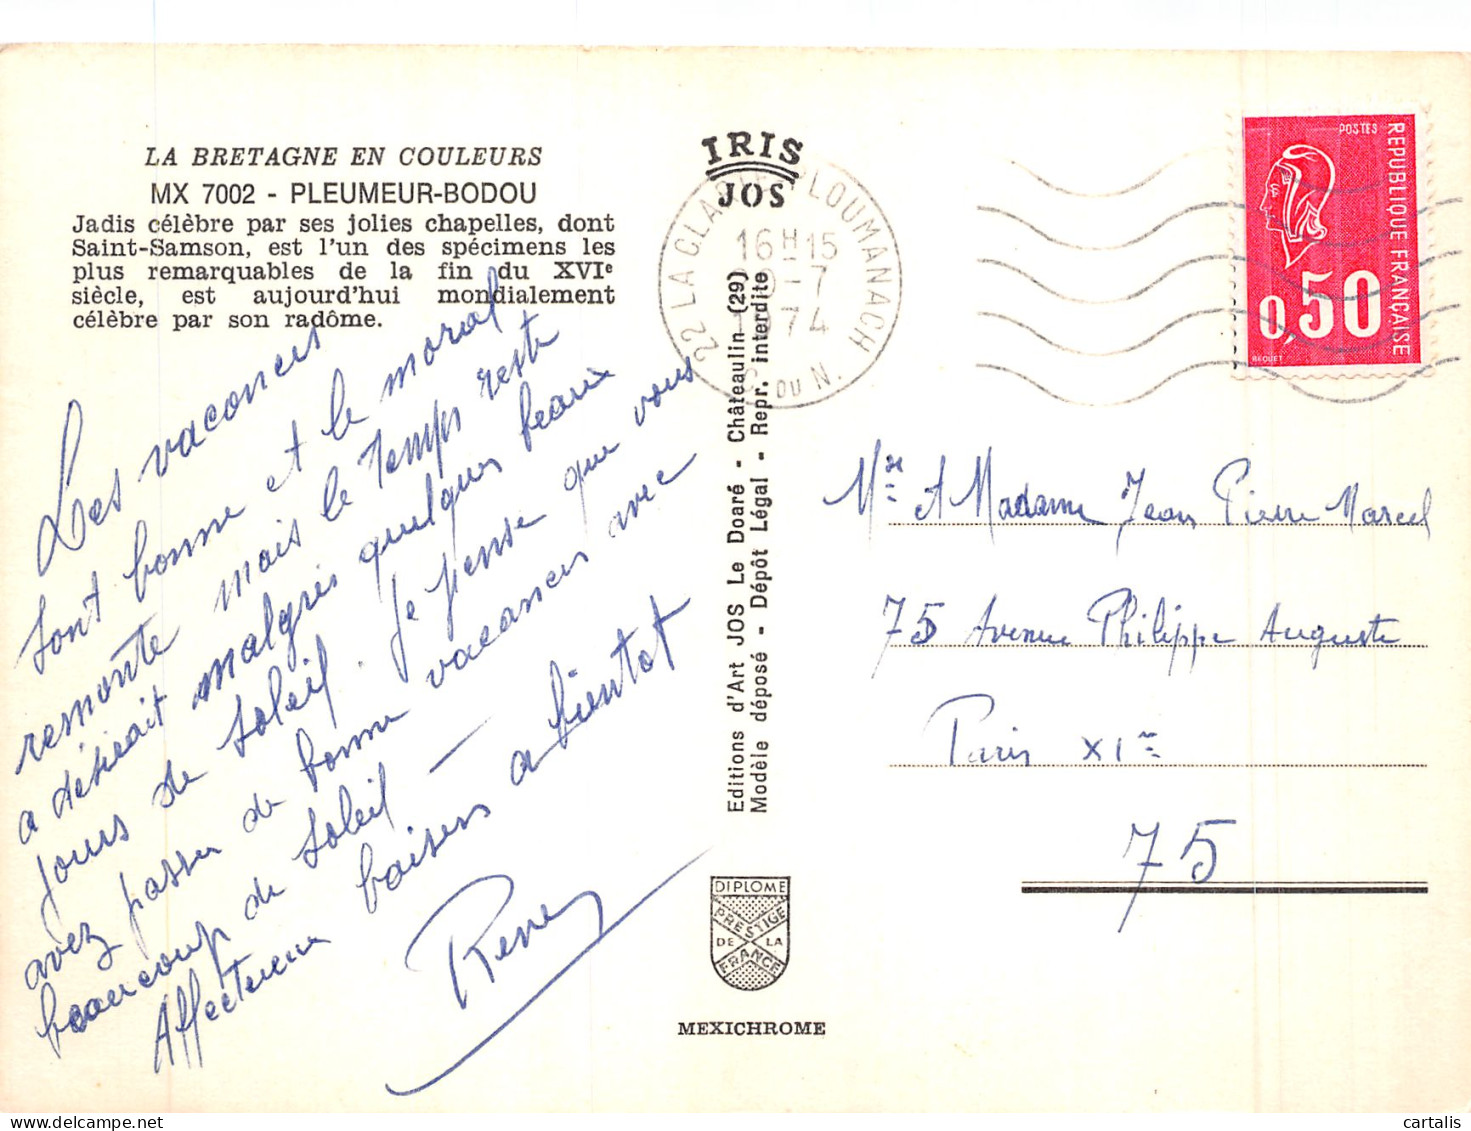 LA BRETAGNE EN COULEURS
MX 7002 - PLEUMEUR-BODOU
Jadis célèbre par ses jolies chapelles, dont
Saint-Samson, est l'un des spécimens les
plus remarquables de la fin du XVIe
siècle, est aujourd'hui mondialement
célèbre par son radôme.
Les vacances
sont bonne et le moral
remonte mais le temps reste
a désirait malgrés quelques beaux
jours de soleil. Je pense que vous
avez passer de bonne vacances avec
beaucoup de soleil —
Affectueux baisers a bientot
René
IRIS
JOS
22 LA CLARTE PLOUMANACH
16H15
-7
1974
C. DU N.
Editions d'Art JOS Le Doaré - Châteaulin (29)
Modèle déposé - Dépôt Légal - Repr. interdite
DIPLOME
PRESTIGE
DE LA
FRANCE
MEXICHROME
POSTES
REPUBLIQUE FRANÇAISE
0,50
BEQUET
Mr et Madame Jean Pierre Marcel
75 Avenue Philippe Auguste
Paris XIme
75
cartalis